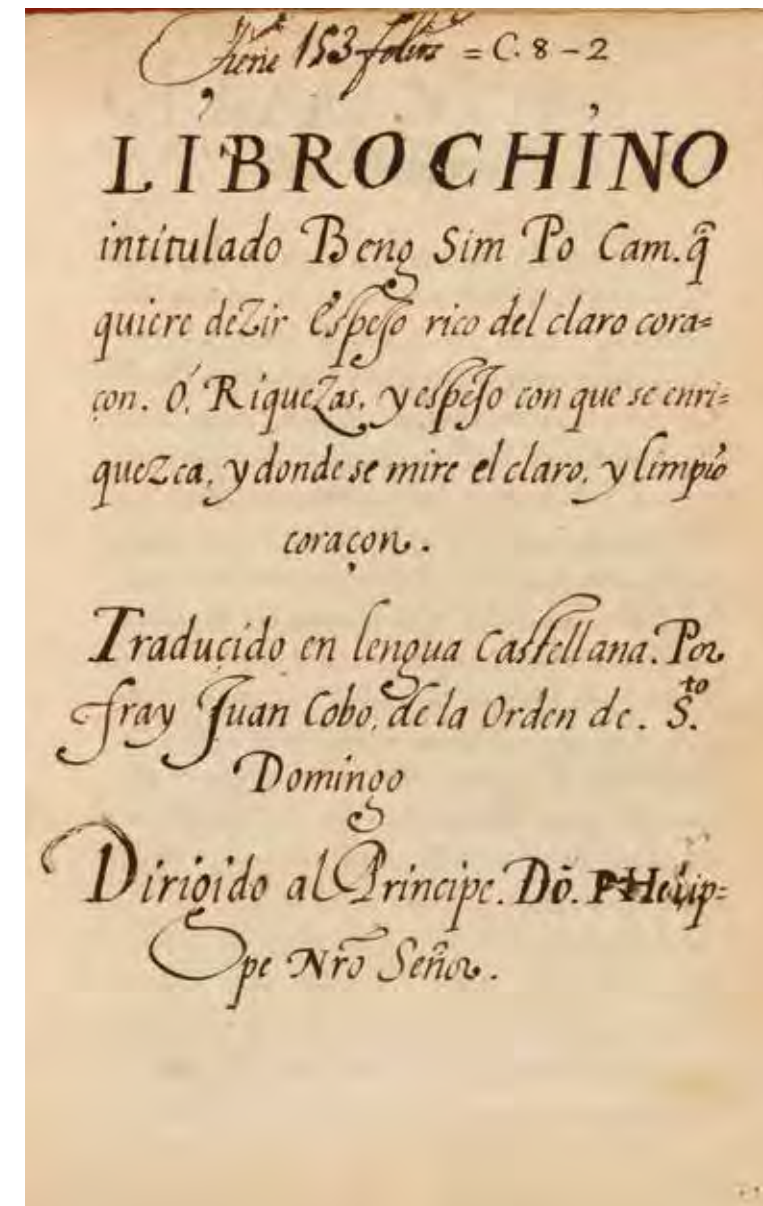 Tiene 153 folios = C. 8 - 2
LIBRO CHINO
intitulado Beng Sim Po Cam. q̃
quiere deZir Espejo rico del claro cora=
çon. O, RiqueZas, y espejo con que se enri=
queZca, y donde se mire el claro, y limpio
coraçon.
Traduçido en lengua Castellana. Por
fray Juan Cobo, de la Orden de. S.to
Domingo
Dirigido al Principe. Dō. PHelip=
pe Nrō Señor.